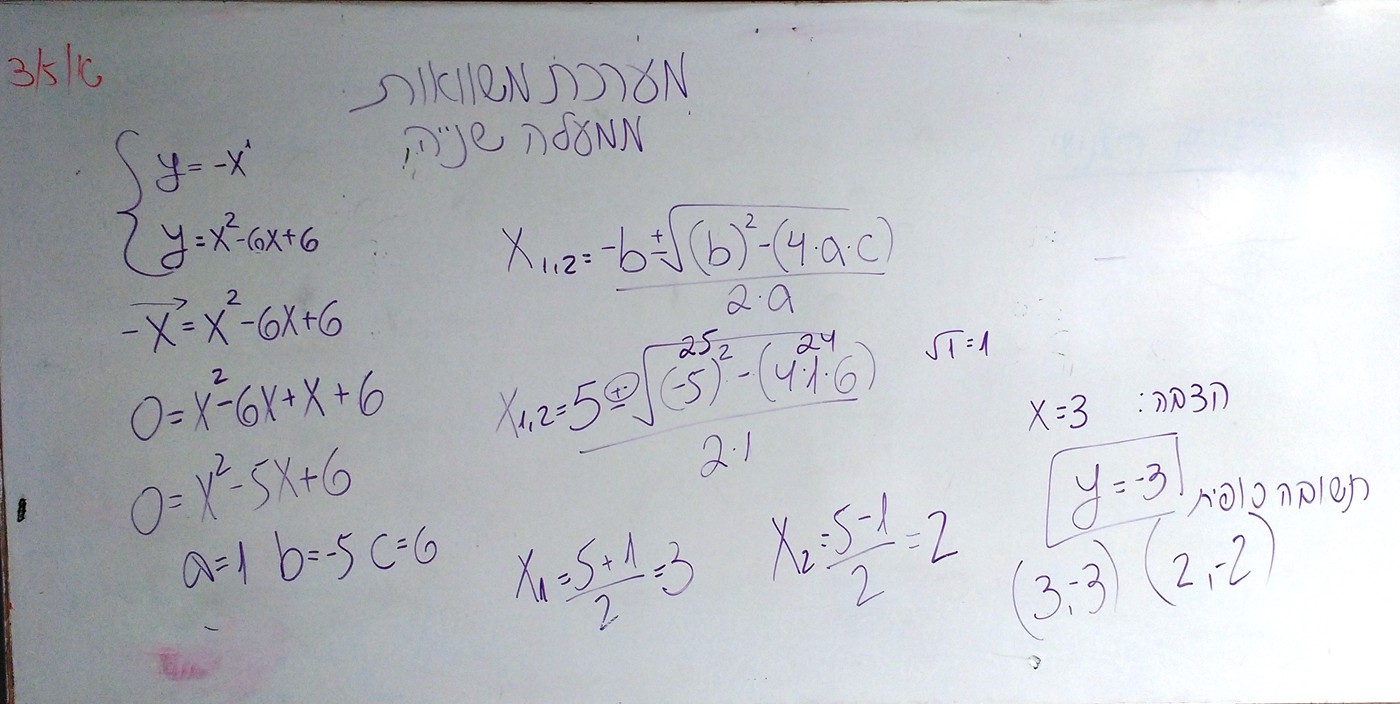 3/5/16
מערכת משוואות
ממעלה שנייה
{ y = -x¹
y = x² - 6x + 6
-x = x² - 6x + 6
0 = x² - 6x + x + 6
0 = x² - 5x + 6
a = 1 b = -5 c = 6
X₁,₂ = (-b ± √((b)² - (4·a·c))) / (2·a)
X₁,₂ = (5 ± √((-5)² - (4·1·6))) / (2·1)
25 24
√1 = 1
X₁ = (5+1)/2 = 3
X₂ = (5-1)/2 = 2
הצבה: x = 3
y = -3
תשובה סופית
(3,-3) (2,-2)